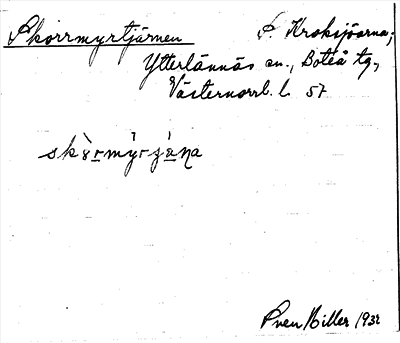 Skorrmyrtjärnen S. Kroksjöarna,
Ytterlännäs sn., Boteå tg.,
Västernorrl. l. 57
Sven Hiller 1932